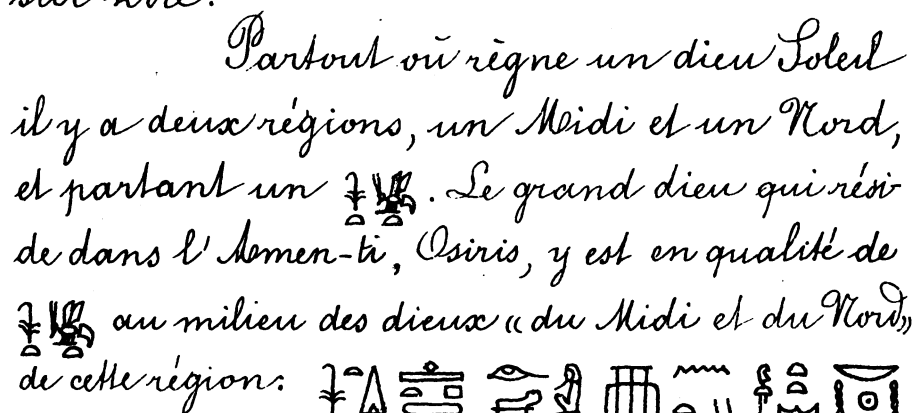 Partout où règne un dieu Soleil
il y a deux régions, un Midi et un Nord,
et partant un 𓇓𓏏𓆤𓏏. Le grand dieu qui rési-
de dans l'Amen-ti, Osiris, y est en qualité de
𓇓𓏏𓆤𓏏 au milieu des dieux « du Midi et du Nord »
de cette région: